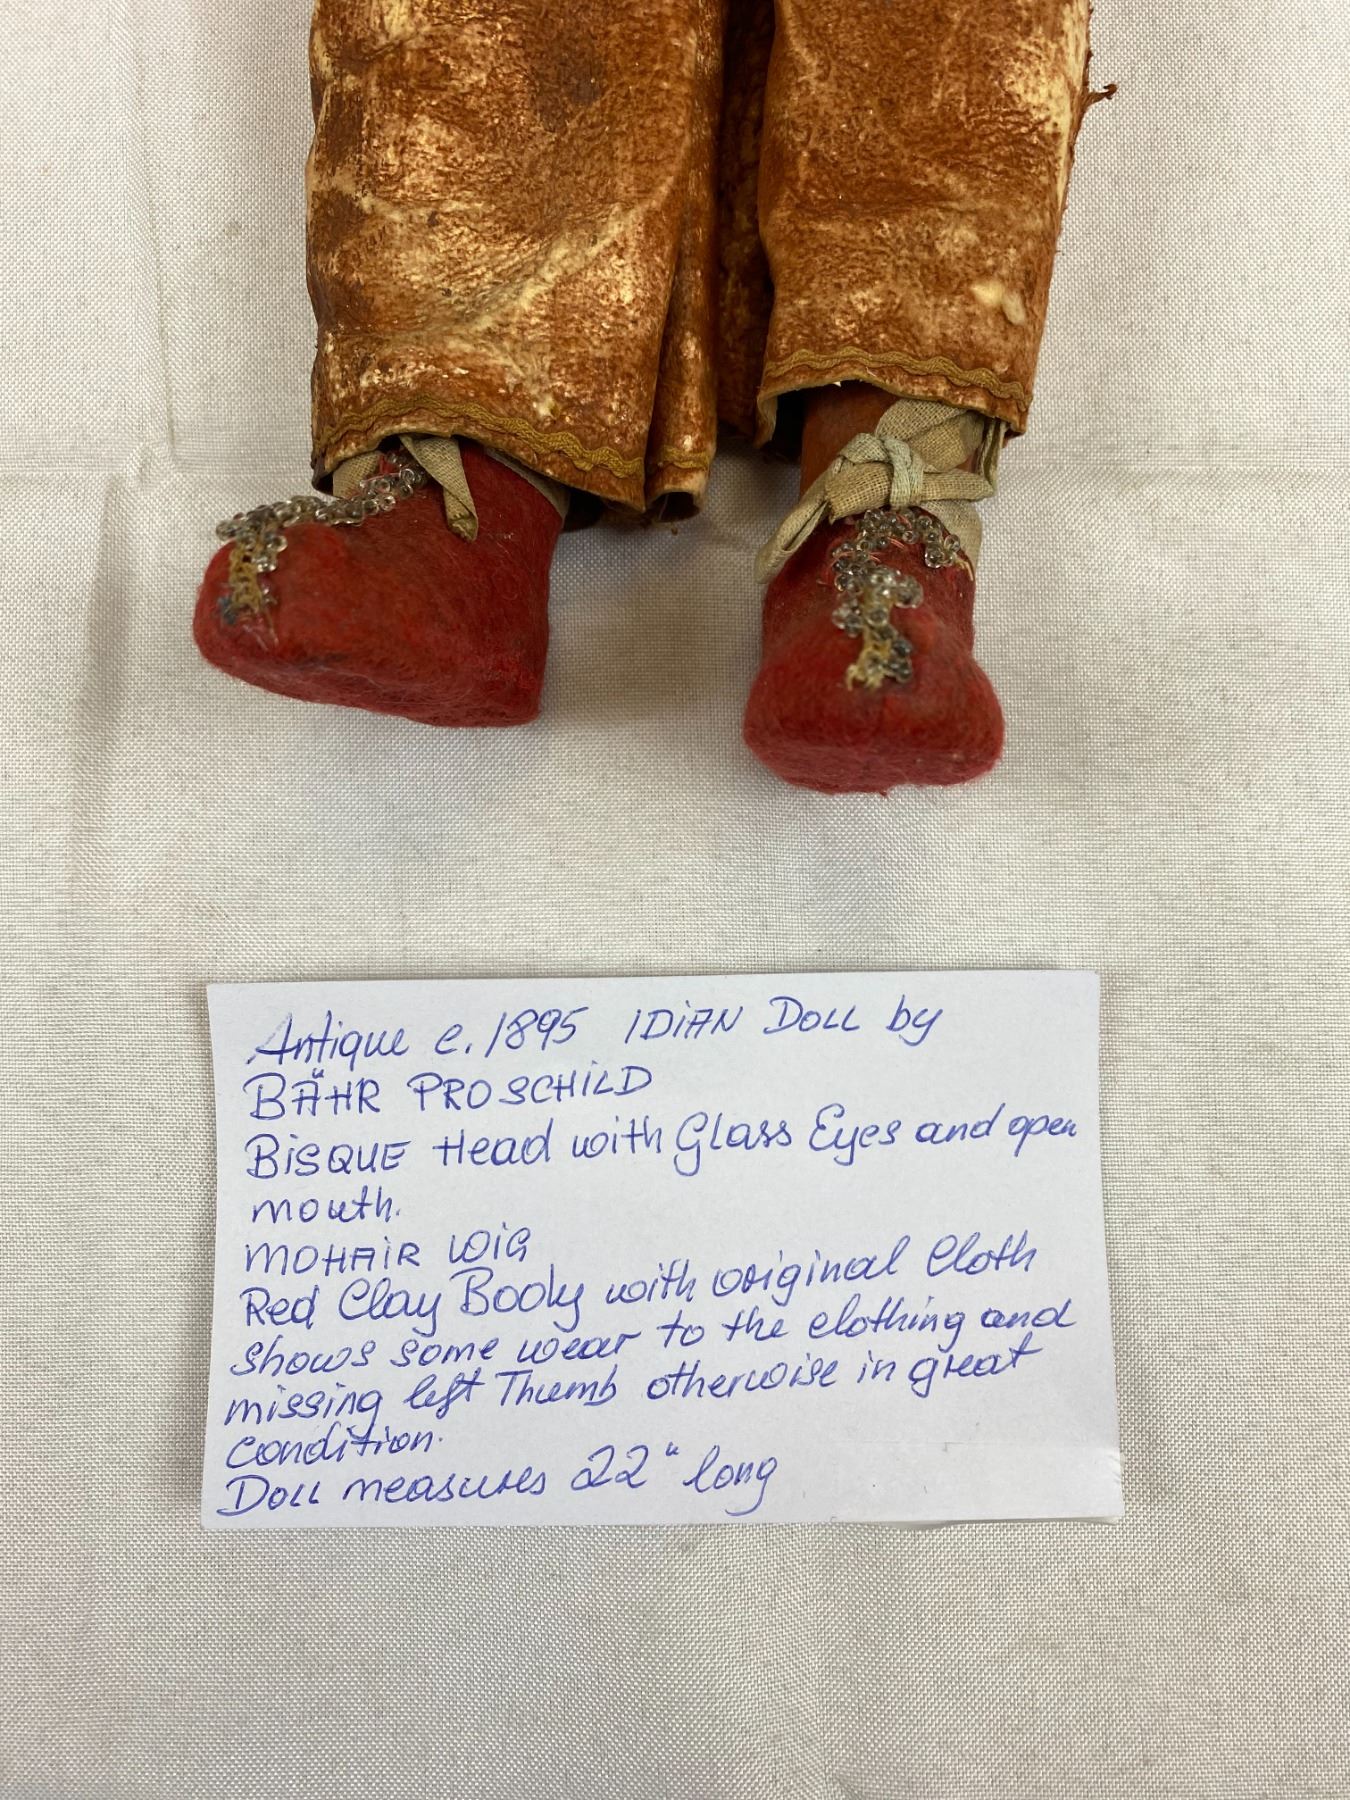 Antique c. 1895 IDIAN DOLL by
BÄHR PROSCHILD
BISQUE Head with Glass Eyes and open
mouth.
MOHAIR WIG
Red Clay Body with original Cloth
shows some wear to the clothing and
missing left Thumb otherwise in great
condition.
DOLL measures 22" long